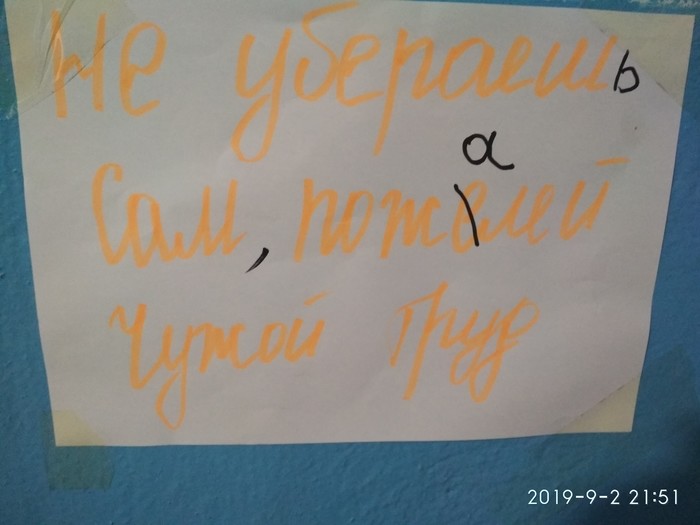 Не убераешь
Сам, пожалей
а
Чужой труд
2019-9-2 21:51